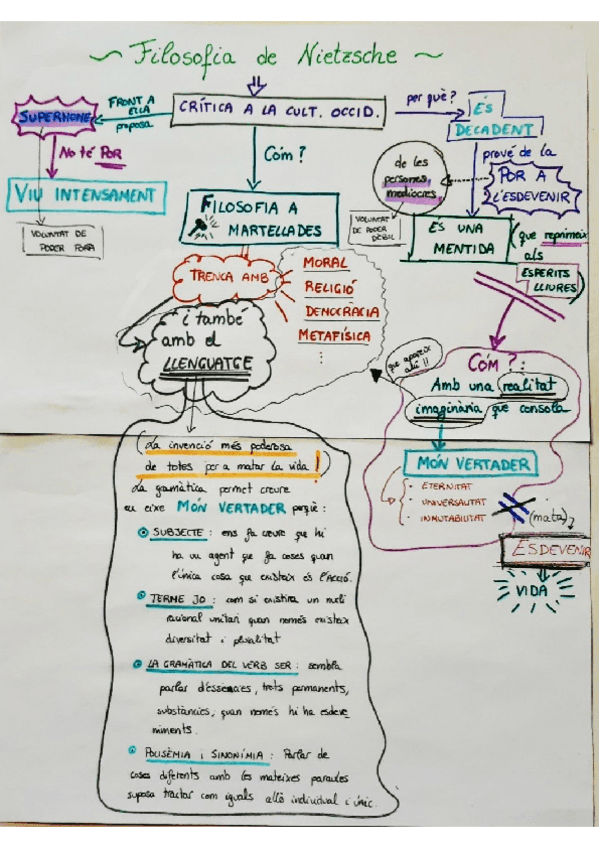 ~ Filosofia de Nietzsche ~
CRÍTICA A LA CULT. OCCID.
FRONT A
ELLA
proposa
SUPERHOME
No té POR
VIU INTENSAMENT
VOLUNTAT DE
PODER FORA
Cóm ?
FILOSOFIA A
MARTELLADES
TRENCA AMB
MORAL
RELIGIÓ
DEMOCRACIA
METAFÍSICA
⋮
i també
amb el
LLENGUATGE
per què?
ÉS
DECADENT
prové de la
POR A
L'ESDEVENIR
de les
persones
mediocres
VOLUNTAT
DE PODER
DÈBIL
ÉS UNA
MENTIDA
(que reprimeix
als
ESPERITS
LLIURES)
CÓM ? :
Amb una realitat
imaginària que consola
que apareix
allí !!
MÓN VERTADER
- ETERNITAT
- UNIVERSALITAT
- INMUTABILITAT
(mata)
ESDEVENIR
VIDA
(La invenció més poderosa
de totes per a matar la vida!)
La gramàtica permet creure
en eixe MÓN VERTADER perquè:
SUBJECTE : ens fa creure que hi
ha un agent que fa coses quan
l'única cosa que existeix és l'ACCIÓ.
TERME JO : com si existira un nucli
racional unitari quan només existeix
diversitat i pluralitat
LA GRAMÀTICA DEL VERB SER : sembla
parlar d'essències, trets permanents,
substàncies, quan només hi ha esdeve
niments.
POLISÈMIA i SINONÍMIA : Parlar de
coses diferents amb les mateixes paraules
suposa tractar com iguals allò individual i únic.